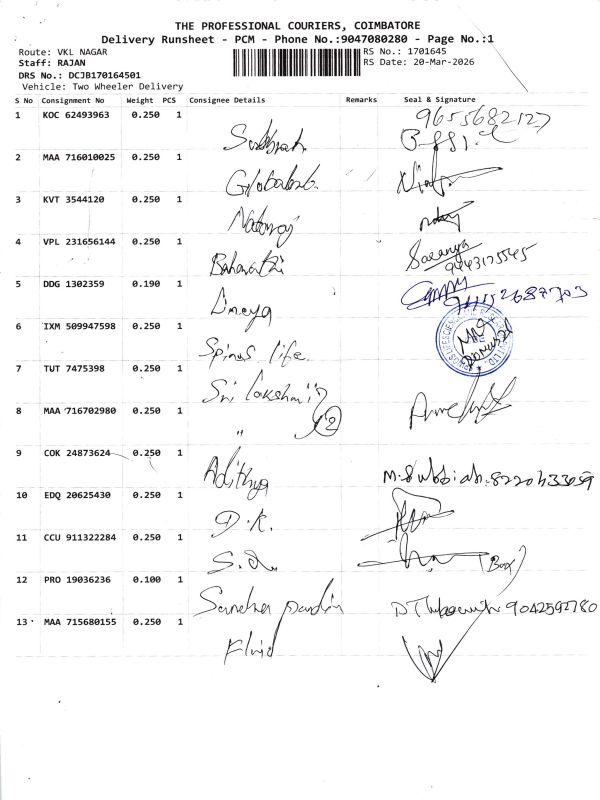 THE PROFESSIONAL COURIERS, COIMBATORE
Delivery Runsheet - PCM - Phone No.:9047080280 - Page No.:1
Route: VKL NAGAR
RS No.: 1701645
Staff: RAJAN
RS Date: 20-Mar-2026
DRS No.: DCJB170164501
Vehicle: Two Wheeler Delivery
S No Consignment No Weight PCS Consignee Details Remarks Seal & Signature
1 KOC 62493963 0.250 1 9655682127
2 MAA 716010025 0.250 1
3 KVT 3544120 0.250 1 Nataraj
4 VPL 231656144 0.250 1 Saranya
9443175545
5 DDG 1302359 0.190 1
6 IXM 509947598 0.250 1 Spinus life
7 TUT 7475398 0.250 1 Sri lakshmi
8 MAA 716702980 0.250 1 " 2
9 COK 24873624 0.250 1 Adithya M. Subbiah
10 EDQ 20625430 0.250 1 D.K.
11 CCU 911322284 0.250 1 (Box)
12 PRO 19036236 0.100 1 9042592780
13 MAA 715680155 0.250 1 Fluid